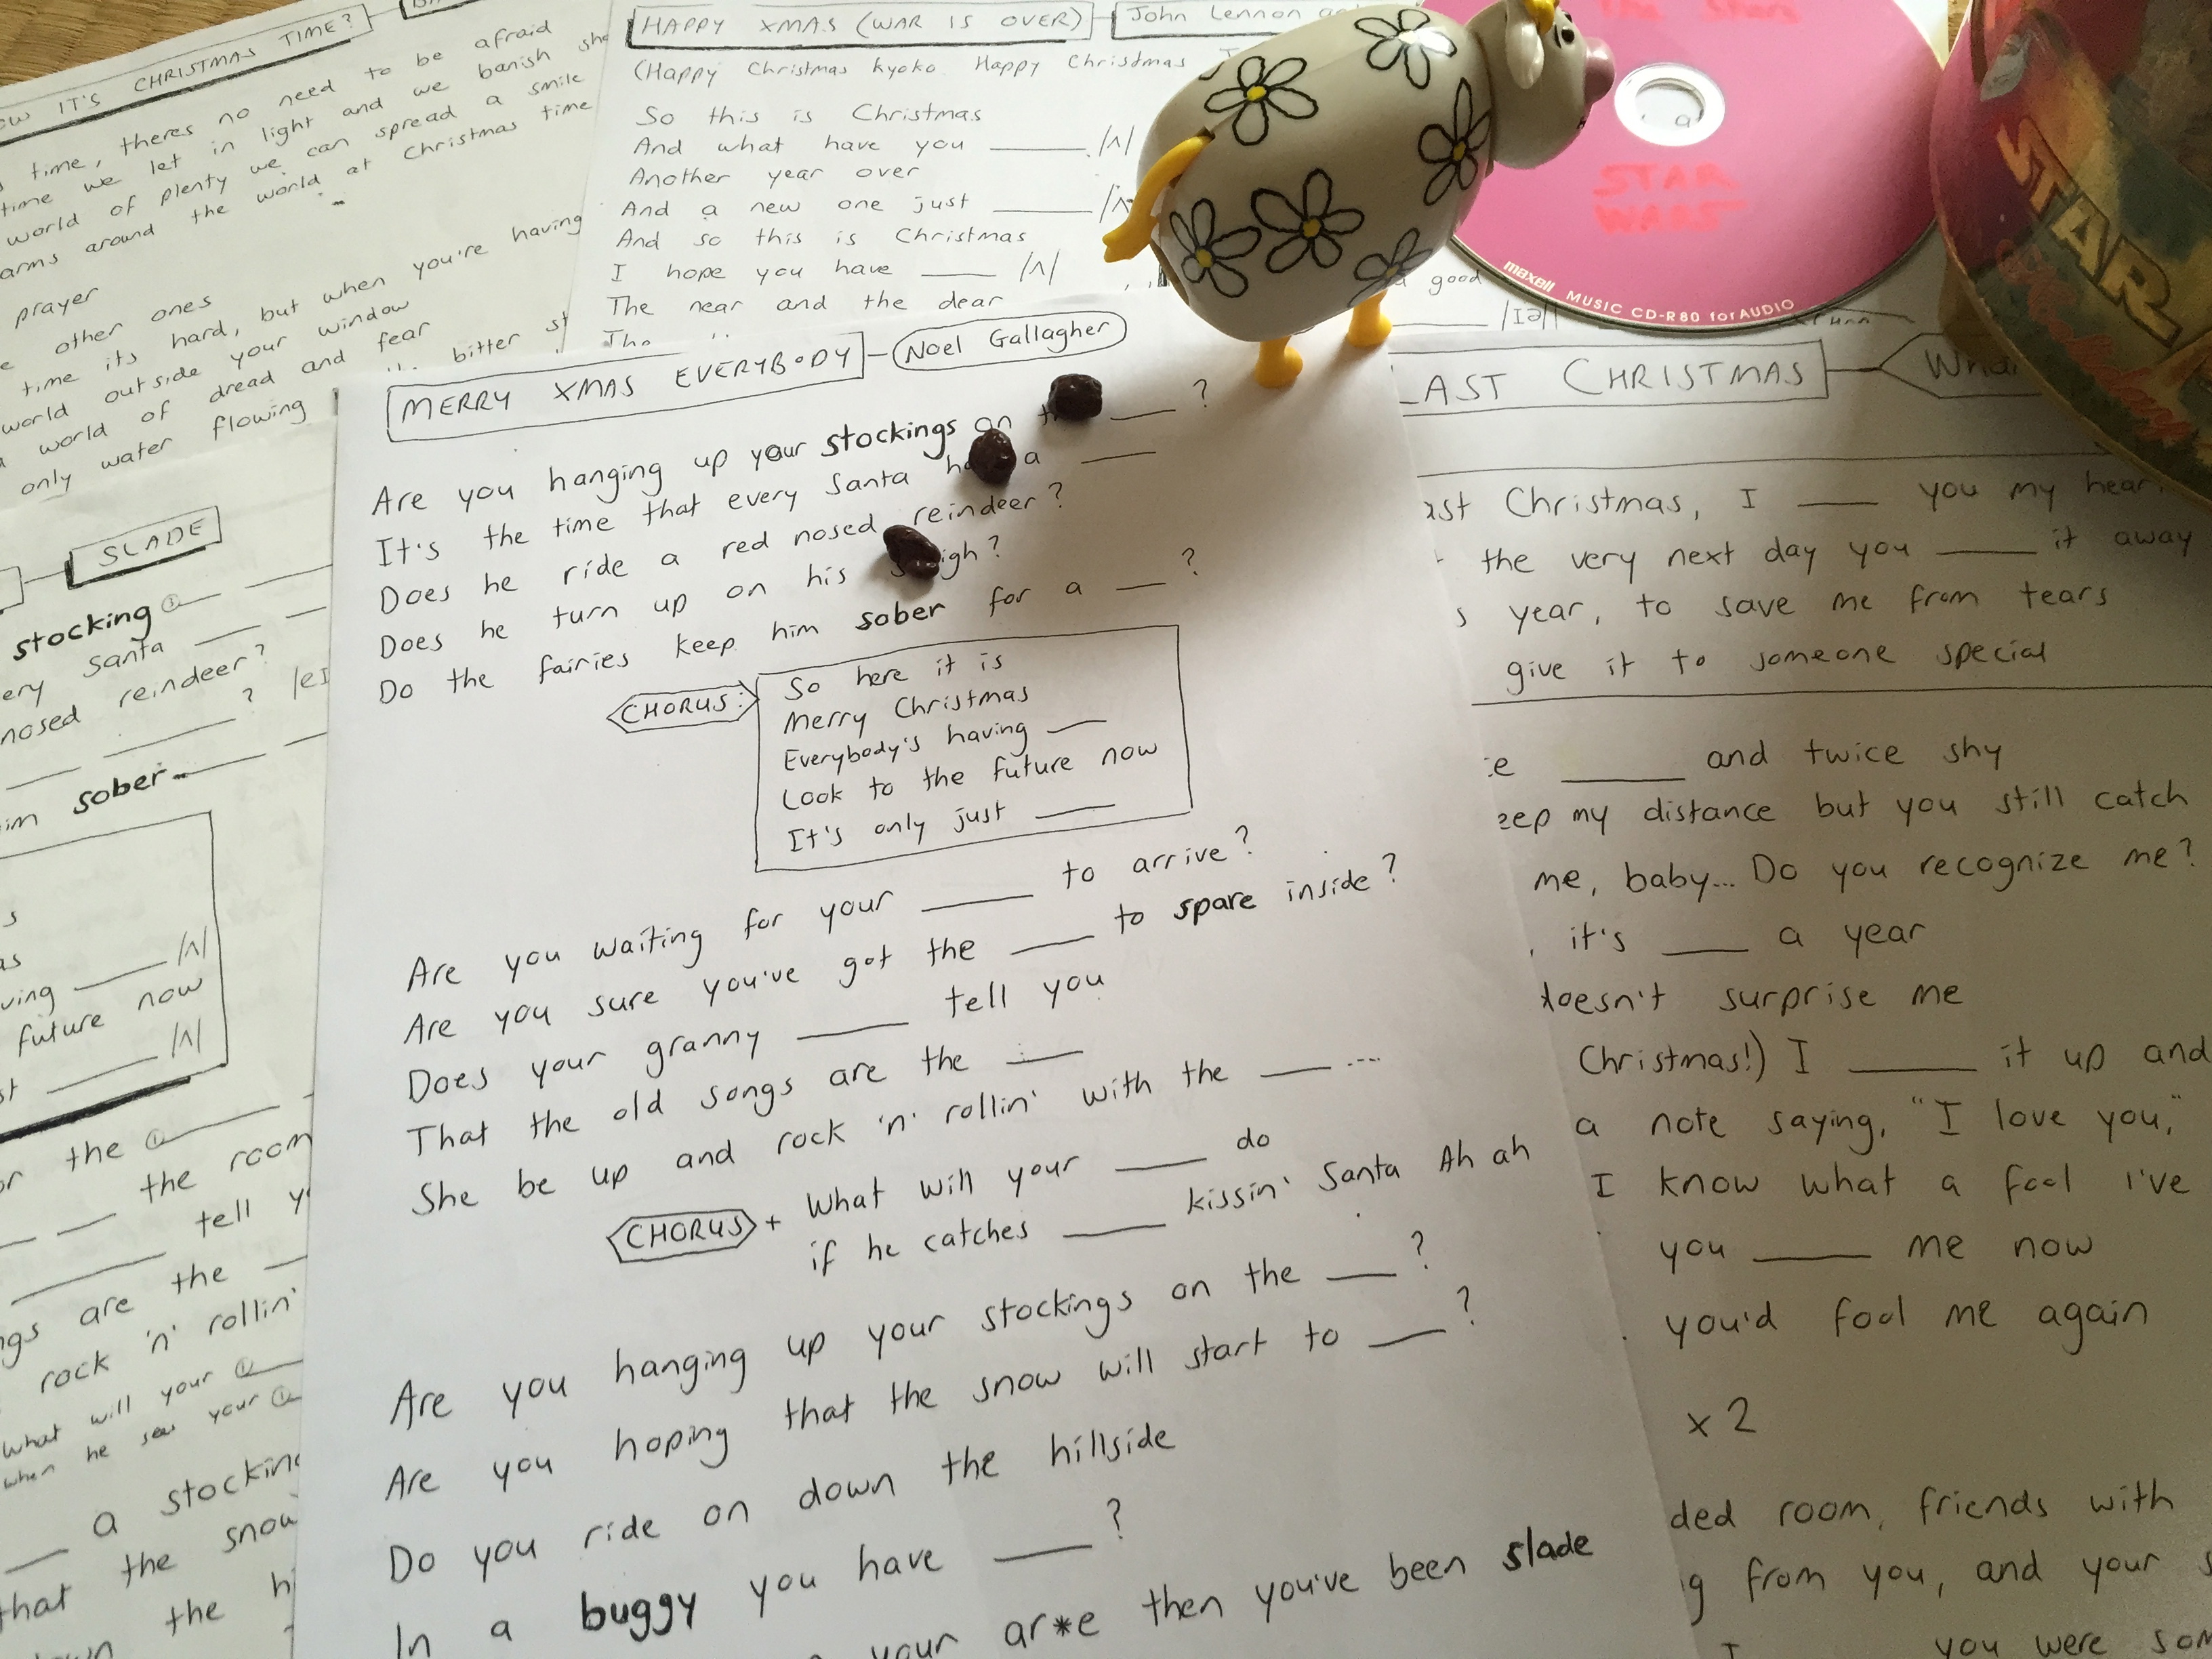 IT'S CHRISTMAS TIME?
time, theres no need to be afraid
time we let in light and we banish
world of plenty we can spread a smile
arms around the world at Christmas time
prayer
other ones
time its hard, but when you're having
world outside your window
world of dread and fear
only water flowing bitter
HAPPY XMAS (WAR IS OVER) John Lennon
(Happy Christmas Kyoko Happy Christmas
So this is Christmas
And what have you ____ /ʌ/
Another year over
And a new one just ____
And so this is Christmas
I hope you have ____ /ʌ/
The near and the dear
good
/Iəl/
STAR
WARS
maxell MUSIC CD-R80 for AUDIO
STAR
SLADE
stocking ①
Santa
reindeer?
nosed ____ ? /eI
sober
/ʌ/
future now
____ /ʌ/
the ①
the room
tell
are the
rock 'n' rollin'
what will your ①
when he sees your ①
a stocking
that the snow
the
MERRY XMAS EVERYBODY Noel Gallagher
Are you hanging up your stockings on ____ ?
It's the time that every Santa a ____
Does he ride a red nosed reindeer?
Does he turn up on his
Do the fairies keep him sober for a ____ ?
CHORUS:
So here it is
Merry Christmas
Everybody's having ____
Look to the future now
It's only just ____
Are you waiting for your ____ to arrive?
Are you sure you've got the ____ to spare inside?
Does your granny ____ tell you
That the old songs are the ____
She be up and rock 'n' rollin' with the ____ ...
CHORUS + What will your ____ do
if he catches ____ kissin' Santa Ah ah
Are you hanging up your stockings on the ____ ?
Are you hoping that the snow will start to ____ ?
Do you ride on down the hillside
In a buggy you have ____ ?
your ar*e then you've been slade
LAST CHRISTMAS
Christmas, I ____ you my
the very next day you ____ it away
year, to save me from tears
give it to someone special
____ and twice shy
my distance but you still catch
me, baby... Do you recognize me?
it's ____ a year
doesn't surprise me
Christmas!) I ____ it up and
a note saying, "I love you,"
I know what a fool I've
you ____ me now
you'd fool me again
x 2
room, friends with
from you, and your
you were